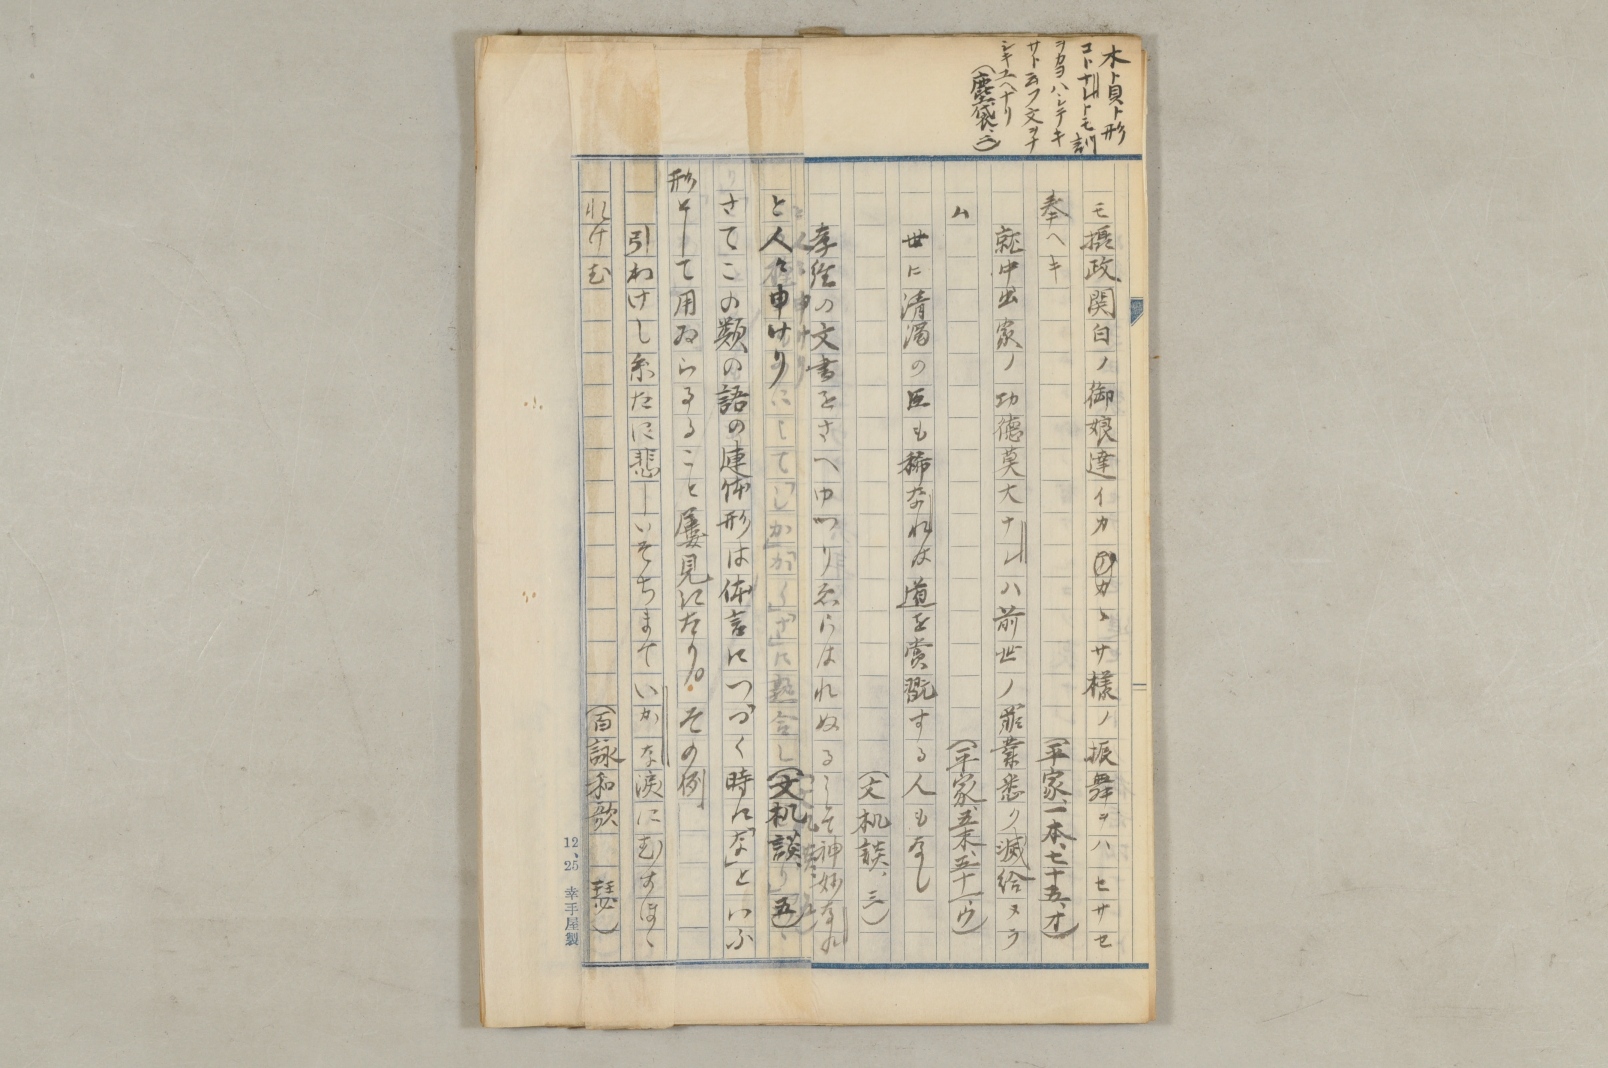 木ト貝ト形
コトナレトモ訓
ヲカヨハシテキ
サト云フ文ヲナ
シキユヘナリ
(塵袋、二)
モ摂政関白ノ御娘達イカ カヽサ様ノ振舞ヲハセサセ
奉ヘキ (平家、一本、七十五、オ)
就中出家ノ功徳莫大ナレハ前世ノ罪業悉ク滅給ヌラ
ム (平家、五末、五十一、ウ)
世に清濁の臣も稀なれは道を賞翫する人もなし
(文机談、三)
孝経の文書をさへゆつりゑらはれぬる こそ神妙なれ
と人々申けり (文机談、五)
さてこの類の語の連体形は体言につづく時に「な」といふ
形をして用ゐらるること屡見江たり。その例
引わけし糸たに悲しいそちまていかな涙にむすほゝ
れけむ (百詠和歌 瑟)
12、25 幸手屋製